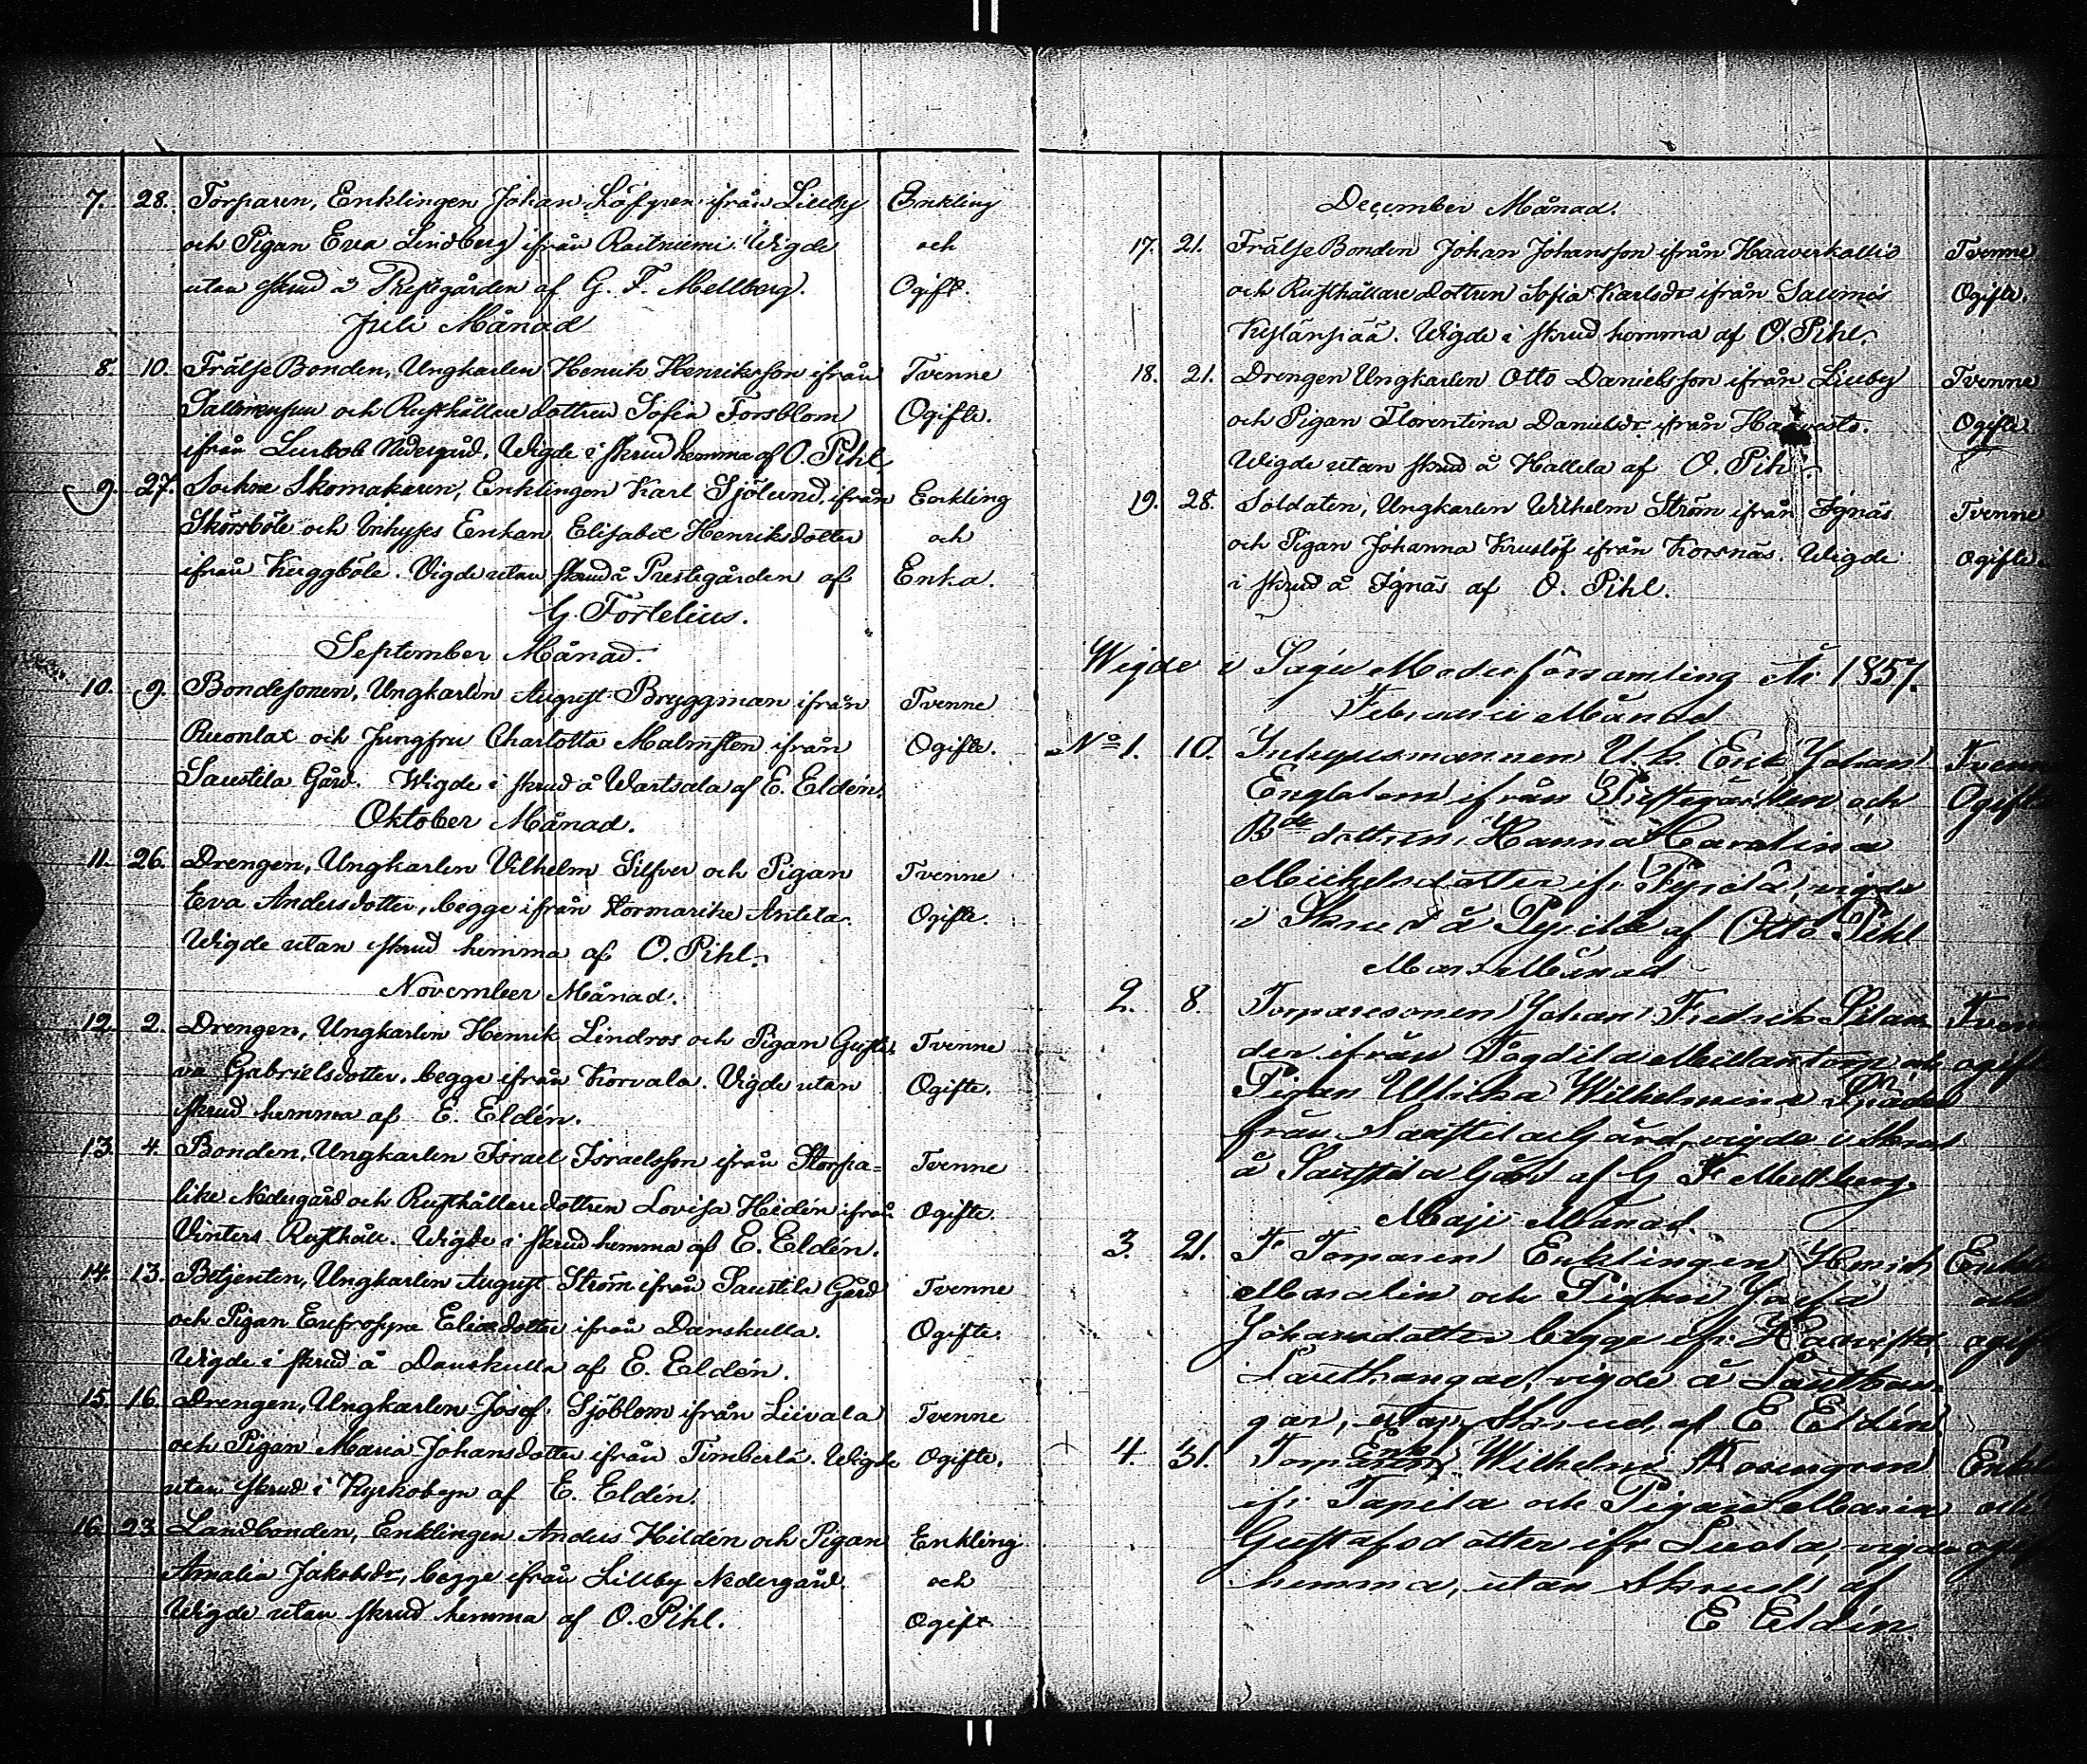 7. 28. Torparen, Enklingen Johan Löfgren ifrån Lilleby Enkling
och Pigan Eva Lindberg ifrån Raitniemi. Wigde och
utan skrud å Prestgården af G. F. Mellberg. Ogift.
Juli Månad
8. 10. Frälse Bonden, Ungkarlen Henrik Henriksson ifrån Tvenne
och Rusthållare dottren Sofia Forsblom Ogifte.
ifrån Nedergård. Wigde i skrud hemma af O. Pihl
9. 27. Sockne Skomakaren, Enklingen Karl Sjölund, ifrån Enkling
Skörsböle och Inhyses Enkan Elisabet Henriksdotter och
ifrån Kuggböle. Vigde utan skrud å Prestegården af Enka.
G. Fortelius.
September Månad.
10. 9. Bondesonen, Ungkarlen August Bryggman ifrån Tvenne
Ruonlax och Jungfru Charlotta Malmsten ifrån Ogifte.
Saustila Gård. Wigde i skrud å Wartsala af E. Eldén.
Oktober Månad.
11. 26. Drengen, Ungkarlen Vilhelm Silfver och Pigan Tvenne
Eva Andersdotter, begge ifrån Stormarike Antila. Ogifte.
Wigde utan skrud hemma af O. Pihl.
November Månad.
12. 2. Drengen, Ungkarlen Henrik Lindros och Pigan Gusta- Tvenne
va Gabrielsdotter, begge ifrån Korvala. Vigde utan Ogifte.
skrud hemma af E. Eldén.
13. 4. Bonden, Ungkarlen Israel Israelsson ifrån Storpa= Tvenne
like Nedergård och Rusthållare dottren Lovisa Hedén ifrån Ogifte.
Vinters Rusthåll. Wigde i skrud hemma af E. Eldén.
14. 13. Betjenten, Ungkarlen August Ström ifrån Saustila Gård Tvenne
och Pigan Eufrosyne Eliædotter ifrån Danskulla. Ogifte.
Wigde i skrud å Danskulla af E. Eldén.
15. 16. Drengen, Ungkarlen Josef Sjöblom ifrån Liivala Tvenne
och Pigan Maria Johansdotter ifrån Timberlä. Wigde Ogifte.
utan skrud i Kyrkobyn af E. Eldén.
16. 23. Landbonden, Enklingen Anders Hildén och Pigan Enkling
Amalia Jakobsdr, begge ifrån Lilleby Nedergård. och
Wigde utan skrud hemma af O. Pihl. Ogift
December Månad.
17. 21. Frälse Bonden Johan Johansson ifrån Haaverkallio Tvenne
och Rusthållare dottren Sofia Karlsdr ifrån Salmis Ogifte.
Kistänpää. Wigde i skrud hemma af O. Pihl.
18. 21. Drengen Ungkarlen Otto Danielsson ifrån Lilleby Tvenne
och Pigan Florentina Danielsdr ifrån Haavisto. Ogifte.
Wigde utan skrud å Hallela af O. Pihl.
19. 28. Soldaten, Ungkarlen Wilhelm Ström ifrån Ignäs Tvenne
och Pigan Johanna Kruslöf ifrån Korsnäs. Wigde Ogifte.
i skrud å Ignäs af O. Pihl.
Wigde i Sagu Moderförsamling År 1857.
Februari Månad
No 1. 10. Inhysesmannen U. k. Erik Johan Tvenne
Engblom ifrån Prestgården och Ogifte
Bde dottren, Hanna Carolina
Mickelsdotter ifr. Pyölä, vigde
i Skrud å af Otto Pihl
Mars Månad
2. 8. Torparesonen Johan Fredrik Silan- Tvenne
der ifrån Fogdila Mellantorp och ogifte
Pigan Ulrika Wilhelmina
från Saustila Gård, vigde i skrud
å Saustila Gård af G F Mellberg.
Maji Månad.
3. 21. F. Torparen Enklingen Henrik Enkling
Monalin och Pigan Josefa och
Johansdotter begge ifr. Haavisto ogift
Lauthangar, vigde å Lauthan-
gar, utan Skrud, af E Eldén.
4. 31. Torparen Enkl. Wilhelm Rosengren Enkling
ifr. Tapila och Pigan Maria och
Gustafsdotter ifr Lusla, vigde ogift
hemma, utan Skrud af
E Eldén.